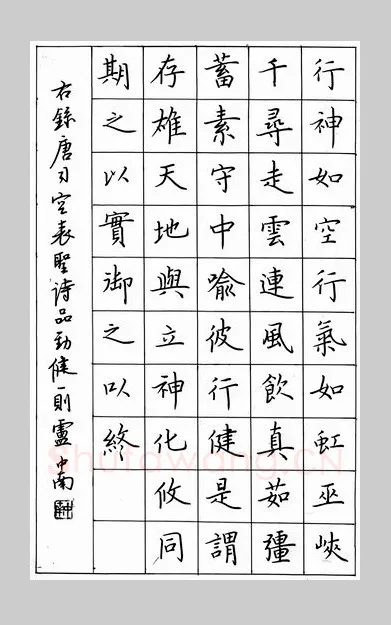 行神如空行氣如虹巫峽
千尋走雲連風飲真茹彊
蓄素守中喻彼行健是謂
存雄天地與立神化攸同
期之以實御之以終
右錄唐司空表聖詩品勁健一則盧中南
Shufawang.CN